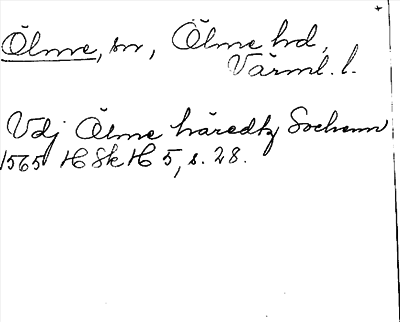 +
Ölme, sn, Ölme hd,
Värml. l.
Vdj Ölme häredtz Sochenn
1565 HSkH 5, s. 28.